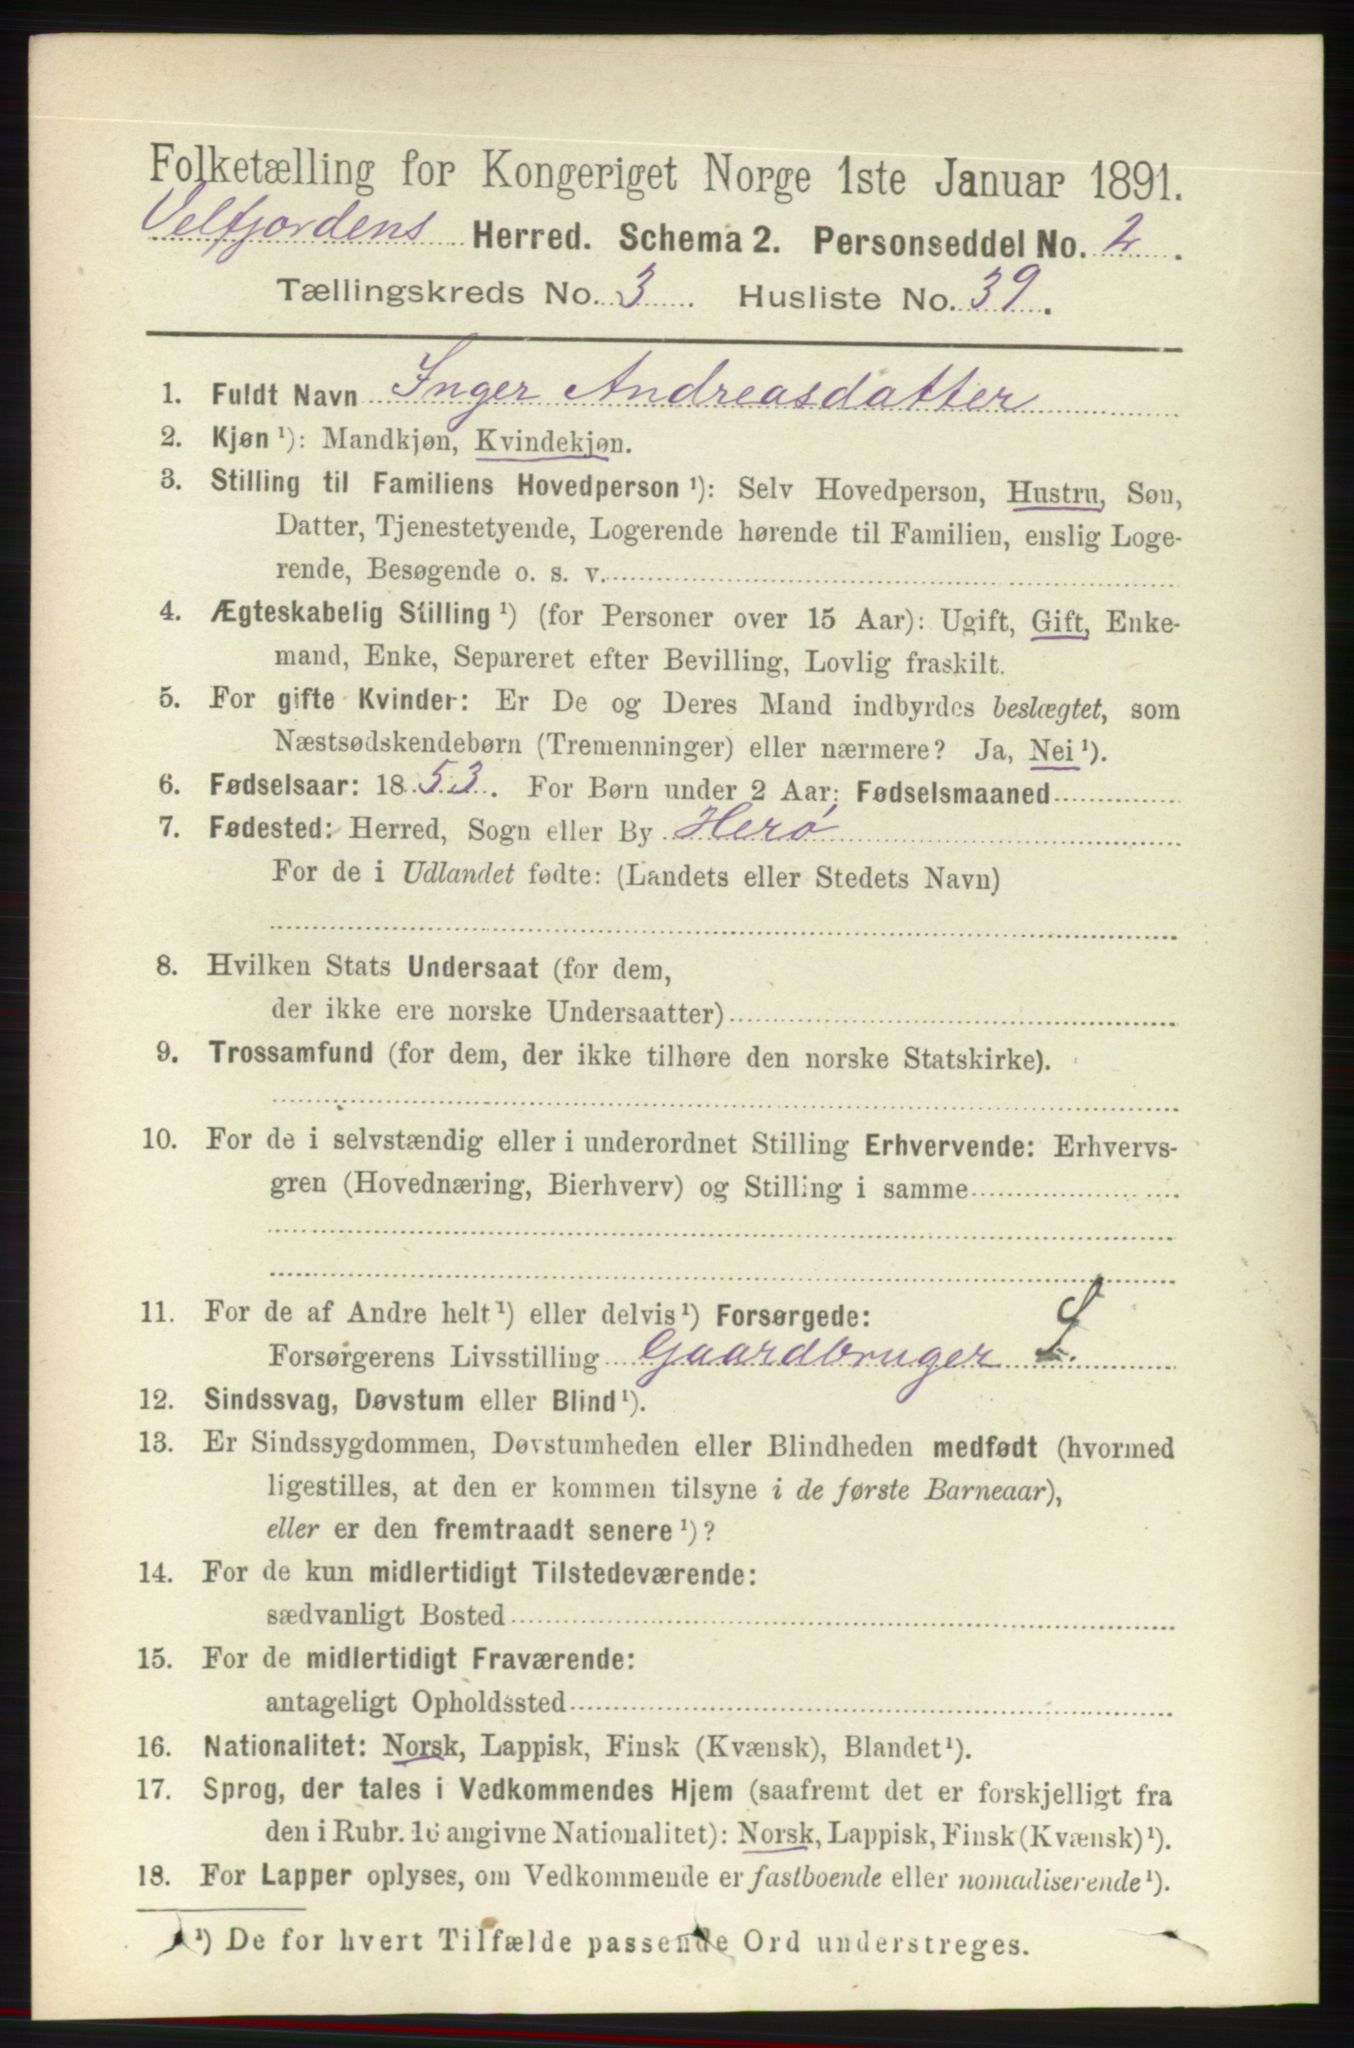 Folketælling for Kongeriget Norge 1ste Januar 1891.
Velfjordens Herred. Schema 2. Personseddel No. 2.
Tællingskreds No. 3. Husliste No. 39.
1. Fuldt Navn Inger Andreasdatter
2. Kjøn ¹): Mandkjøn, Kvindekjøn.
3. Stilling til Familiens Hovedperson ¹): Selv Hovedperson, Hustru, Søn,
Datter, Tjenestetyende, Logerende hørende til Familien, enslig Loge-
rende, Besøgende o. s. v.
4. Ægteskabelig Stilling ¹) (for Personer over 15 Aar): Ugift, Gift, Enke-
mand, Enke, Separeret efter Bevilling, Lovlig fraskilt.
5. For gifte Kvinder: Er De og Deres Mand indbyrdes beslægtet, som
Næstsødskendebørn (Tremenninger) eller nærmere? Ja, Nei ¹).
6. Fødselsaar: 1853. For Børn under 2 Aar: Fødselsmaaned
7. Fødested: Herred, Sogn eller By Herø
For de i Udlandet fødte: (Landets eller Stedets Navn)
8. Hvilken Stats Undersaat (for dem,
der ikke ere norske Undersaatter)
9. Trossamfund (for dem, der ikke tilhøre den norske Statskirke).
10. For de i selvstændig eller i underordnet Stilling Erhvervende: Erhvervs-
gren (Hovednæring, Bierhverv) og Stilling i samme
11. For de af Andre helt ¹) eller delvis ¹) Forsørgede:
Forsørgerens Livsstilling Gaardbruger
12. Sindssvag, Døvstum eller Blind ¹).
13. Er Sindssygdommen, Døvstumheden eller Blindheden medfødt (hvormed
ligestilles, at den er kommen tilsyne i de første Barneaar),
eller er den fremtraadt senere ¹)?
14. For de kun midlertidigt Tilstedeværende:
sædvanligt Bosted
15. For de midlertidigt Fraværende:
antageligt Opholdssted
16. Nationalitet: Norsk, Lappisk, Finsk (Kvænsk), Blandet ¹).
17. Sprog, der tales i Vedkommendes Hjem (saafremt det er forskjelligt fra
den i Rubr. 16 angivne Nationalitet): Norsk, Lappisk, Finsk (Kvænsk) ¹).
18. For Lapper oplyses, om Vedkommende er fastboende eller nomadiserende ¹).
¹) De for hvert Tilfælde passende Ord understreges.